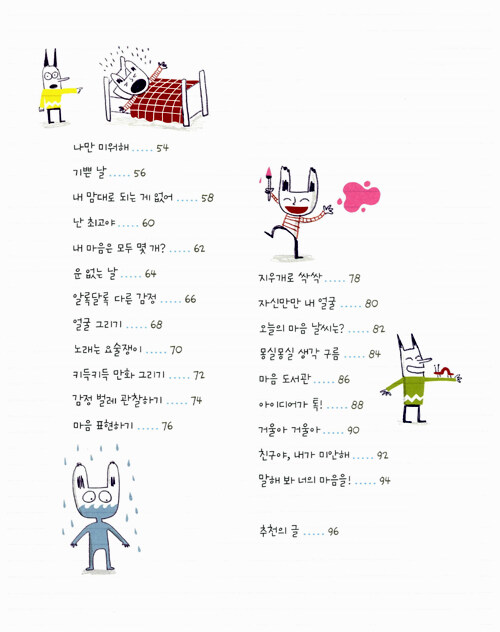 나만 미워해 ..... 54
기쁜 날 ..... 56
내 맘대로 되는 게 없어 ..... 58
난 최고야 ..... 60
내 마음은 모두 몇 개? ..... 62
운 없는 날 ..... 64
알록달록 다른 감정 ..... 66
얼굴 그리기 ..... 68
노래는 요술쟁이 ..... 70
키득키득 만화 그리기 ..... 72
감정 벌레 관찰하기 ..... 74
마음 표현하기 ..... 76
지우개로 싹싹 ..... 78
자신만만 내 얼굴 ..... 80
오늘의 마음 날씨는? ..... 82
몽실몽실 생각 구름 ..... 84
마음 도서관 ..... 86
아이디어가 톡! ..... 88
거울아 거울아 ..... 90
친구야, 내가 미안해 ..... 92
말해 봐 너의 마음을! ..... 94
추천의 글 ..... 96